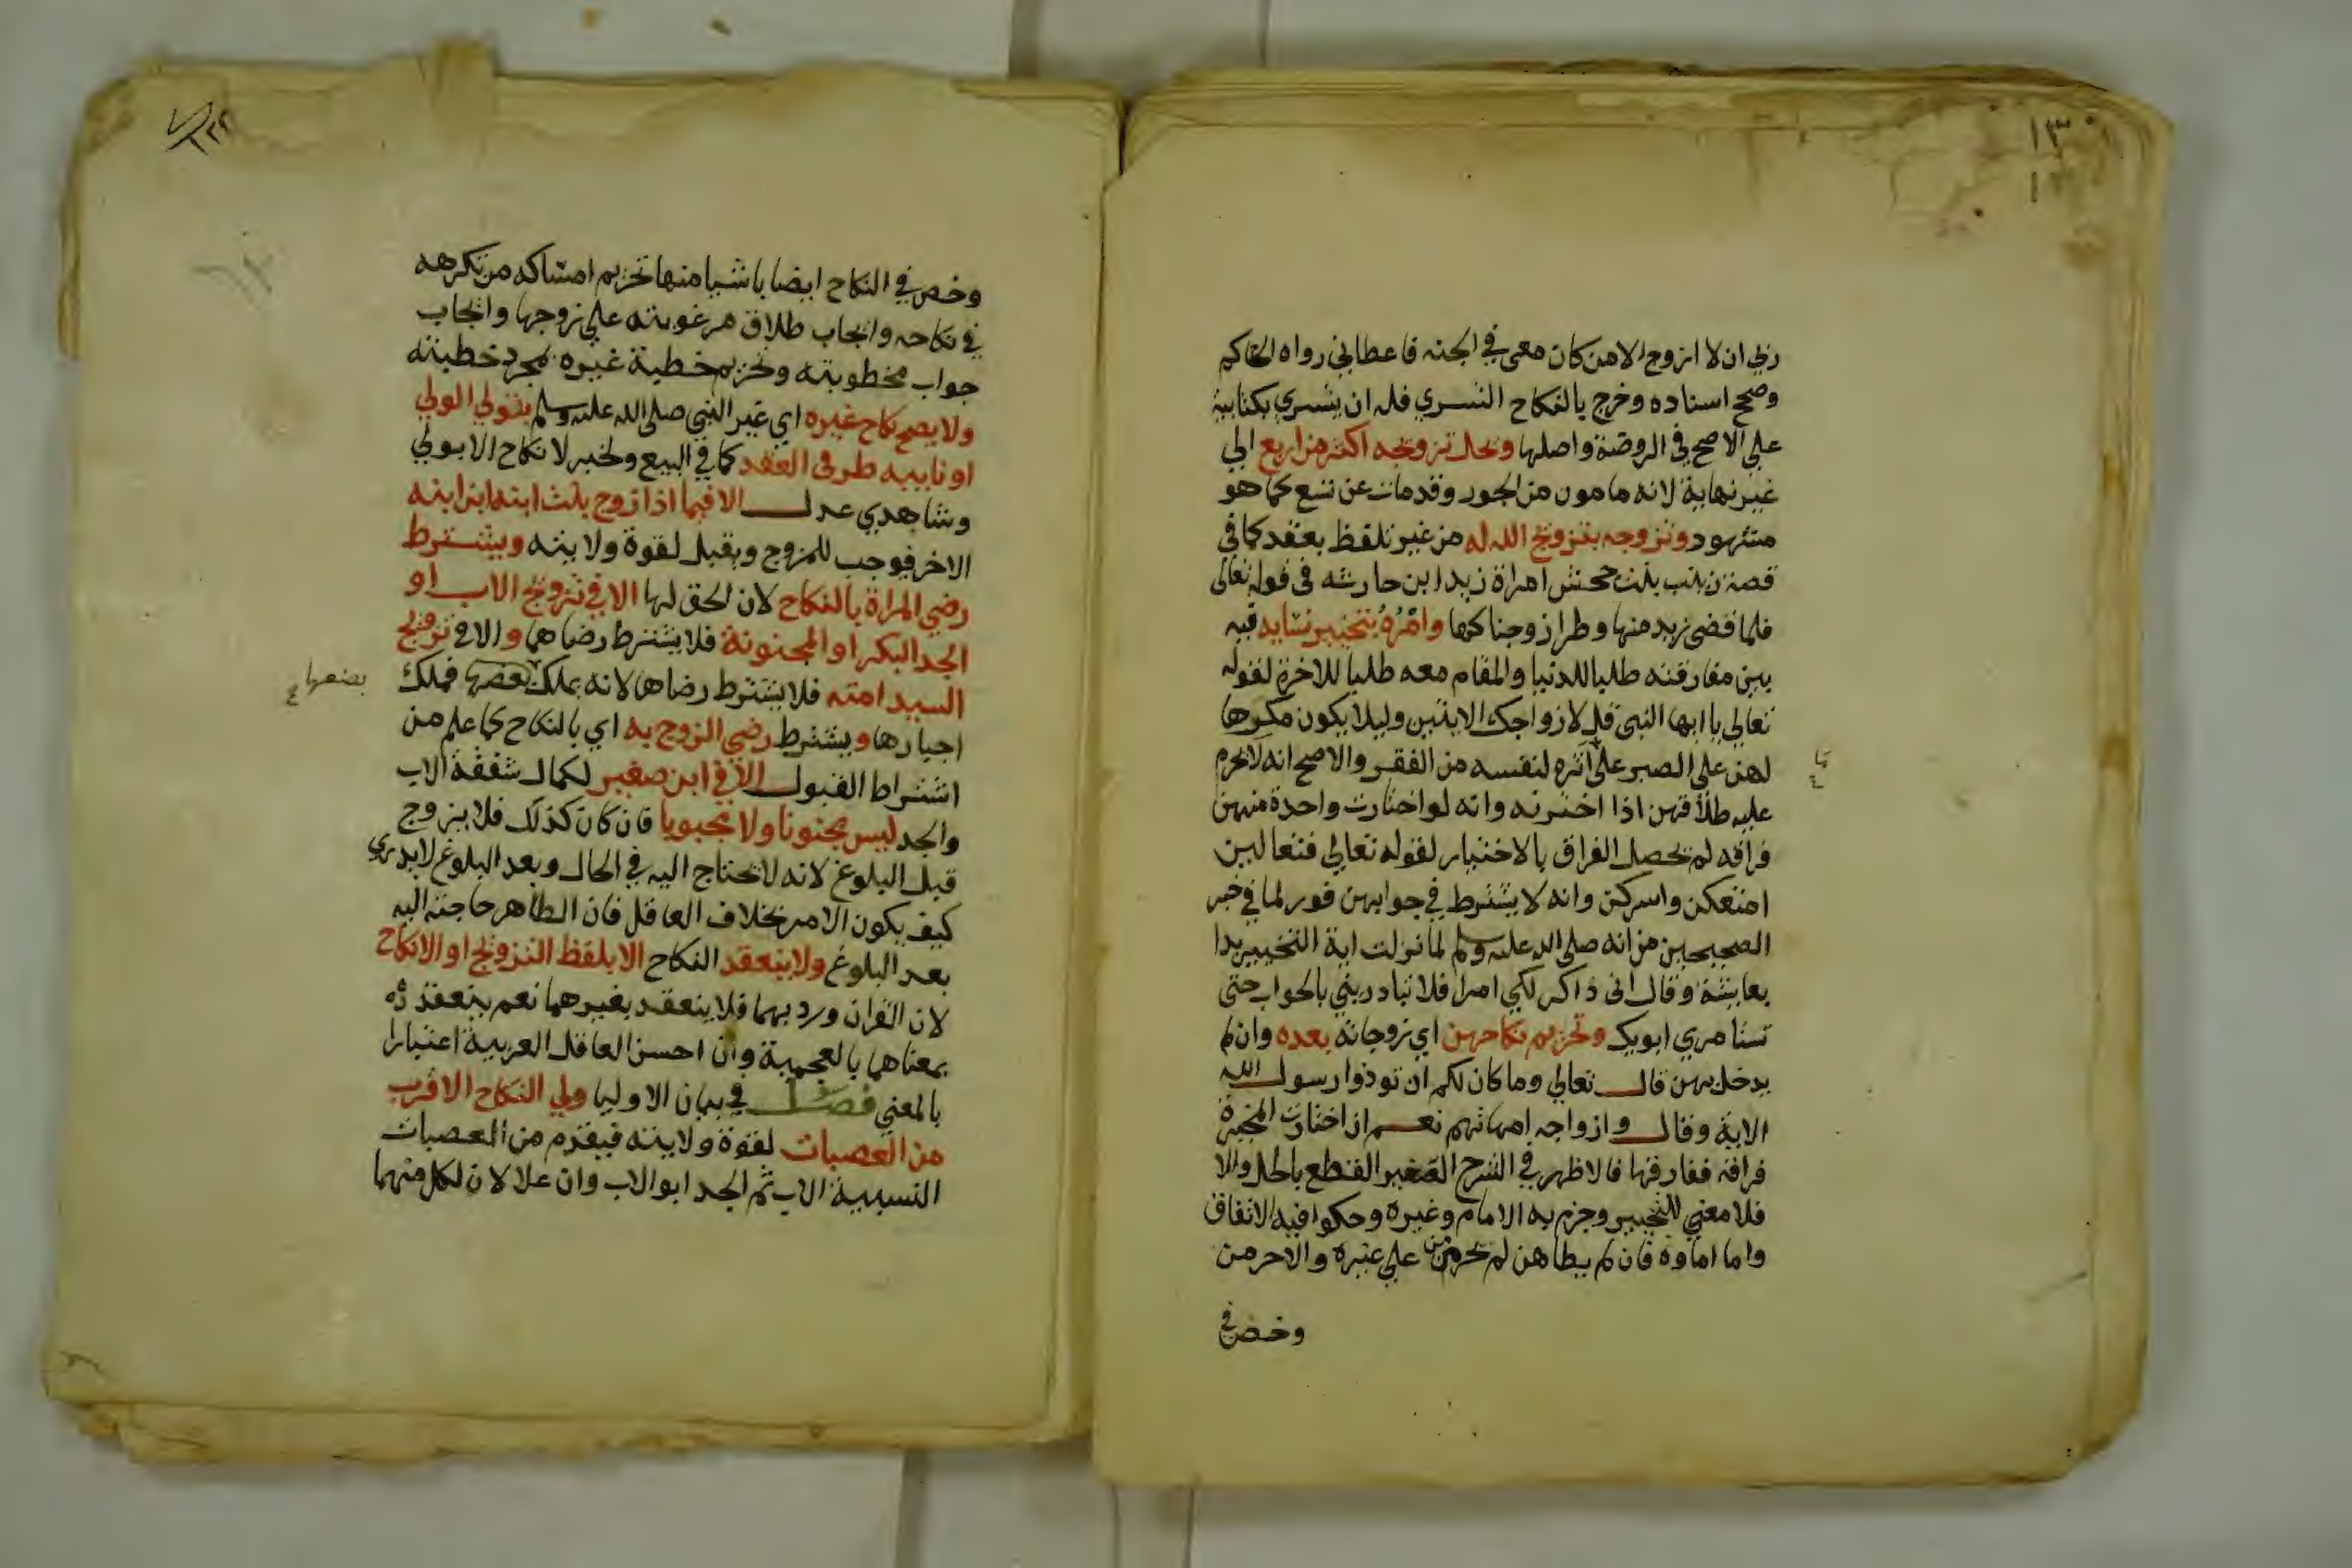 ١٣٠
ربي ان لا اتزوج الا من كان معي في الجنه فاعطاني رواه الحاكم
وصحح اسناده وخرج بالنكاح التسري فله ان يتسري بكتابية
علي الاصح في الروضة واصلها وتحل تزوجه اكثر من اربع الي
غير نهاية لانه مامون من الجور وقد مات عن تسع كما هو
مشهود وتزوجه بتزويج الله له من غير تلفظ بعقد كما في
قصة زينب بنت جحش امراة زيد ابن حارثه في قوله تعالي
فلما قضي زيد منها وطرا زوجناكها وامْرُهُ بتخيير نسايه فيه
بين مفارقته طلبا للدنيا والمقام معه طلبا للاخرة لقوله
تعالي يا ايها النبي قل لازواجك الايتين وليلا يكون مكرها
لهن علي الصبر علي آثره لنفسه من الفقر والاصح انه لا تحرم
عليه طلاقهن اذا اخترنه وانه لو اختارت واحدة منهن
فراقه لم يحصل الفراق بالاختيار لقوله تعالي فتعالين
امتعكن واسركن وانه لا يشترط في جوابهن فور لما في خبر
الصحيحين من انه صلي الله عليه وسلم لما نزلت اية التخيير بدا
بعايشة وقال اني ذاكر لكي امرا فلا تبادريني بالجواب حتي
تستامري ابويك وتحريم نكاحهن اي زوجاته بعده وان لم
يدخل بهن قال تعالي وما كان لكم ان توذوا رسول الله
الاية وقال وازواجه امهاتهم نعم ان اختارت المخيرة
فراقه ففارقها فالاظهر في الشرح الصغير القطع بالحل والا
فلا معني للتخيير وجزم به الامام وغيره وحكوا فيه الاتفاق
واما اماوه فان لم يطاهن لم تحرمن علي غيره والا حرمن
وخص في
وخص في النكاح ايضا باشيا منها تحريم امساكه من تكرهه
في نكاحه وايجاب طلاق مرغوبته علي زوجها وايجاب
جواب مخطوبته وتحريم خطبة غيره بمجرد خطبته
ولا يصح نكاح غيره اي غير النبي صلي الله عليه وسلم بتولي الولي
او ناييبه طرفي العقد كما في البيع ولخبر لا نكاح الا بولي
وشاهدي عدل الا فيما اذا زوج بنت ابنه ابن ابنه
الاخر فيوجب للمزوج ويقبل لقوة ولايته ويشترط
رضي المراة بالنكاح لان الحق لها الا في تزويج الاب او
الجد البكر او المجنونة فلا يشترط رضاهما والا في تزويج
السيد امته فلا يشترط رضاها لانه يملك بعضها فملك
بضعها
اجبارها ويشترط رضي الزوج به اي بالنكاح كما علم من
اشتراط القبول الا في ابن صغير لكمال شفقة الاب
والجد ليس مجنونا ولا مجبوبا فان كان كذلك فلا يزوج
قبل البلوغ لانه لا يحتاج اليه في الحال وبعد البلوغ لا يدري
كيف يكون الامر بخلاف العاقل فان الظاهر حاجته اليه
بعد البلوغ ولا ينعقد النكاح الا بلفظ التزويج او الانكاح
لان القران ورد بهما فلا ينعقد بغيرهما نعم ينعقد
بمعناهما بالعجمية وان احسن العاقد العربية اعتبارا
بالمعني فصل في بيان الاوليا ولي النكاح الاقرب
من العصبات لقوة ولايته فيقدم من العصبات
النسبية الاب ثم الجد ابو الاب وان علا لان لكل منهما